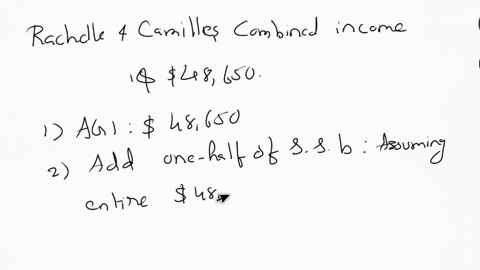 Rachelle & Camilles Combined income
is $48,650.
1) AGI : $ 48,650
2) Add one-half of s.s.b : Assuming
entire $48,